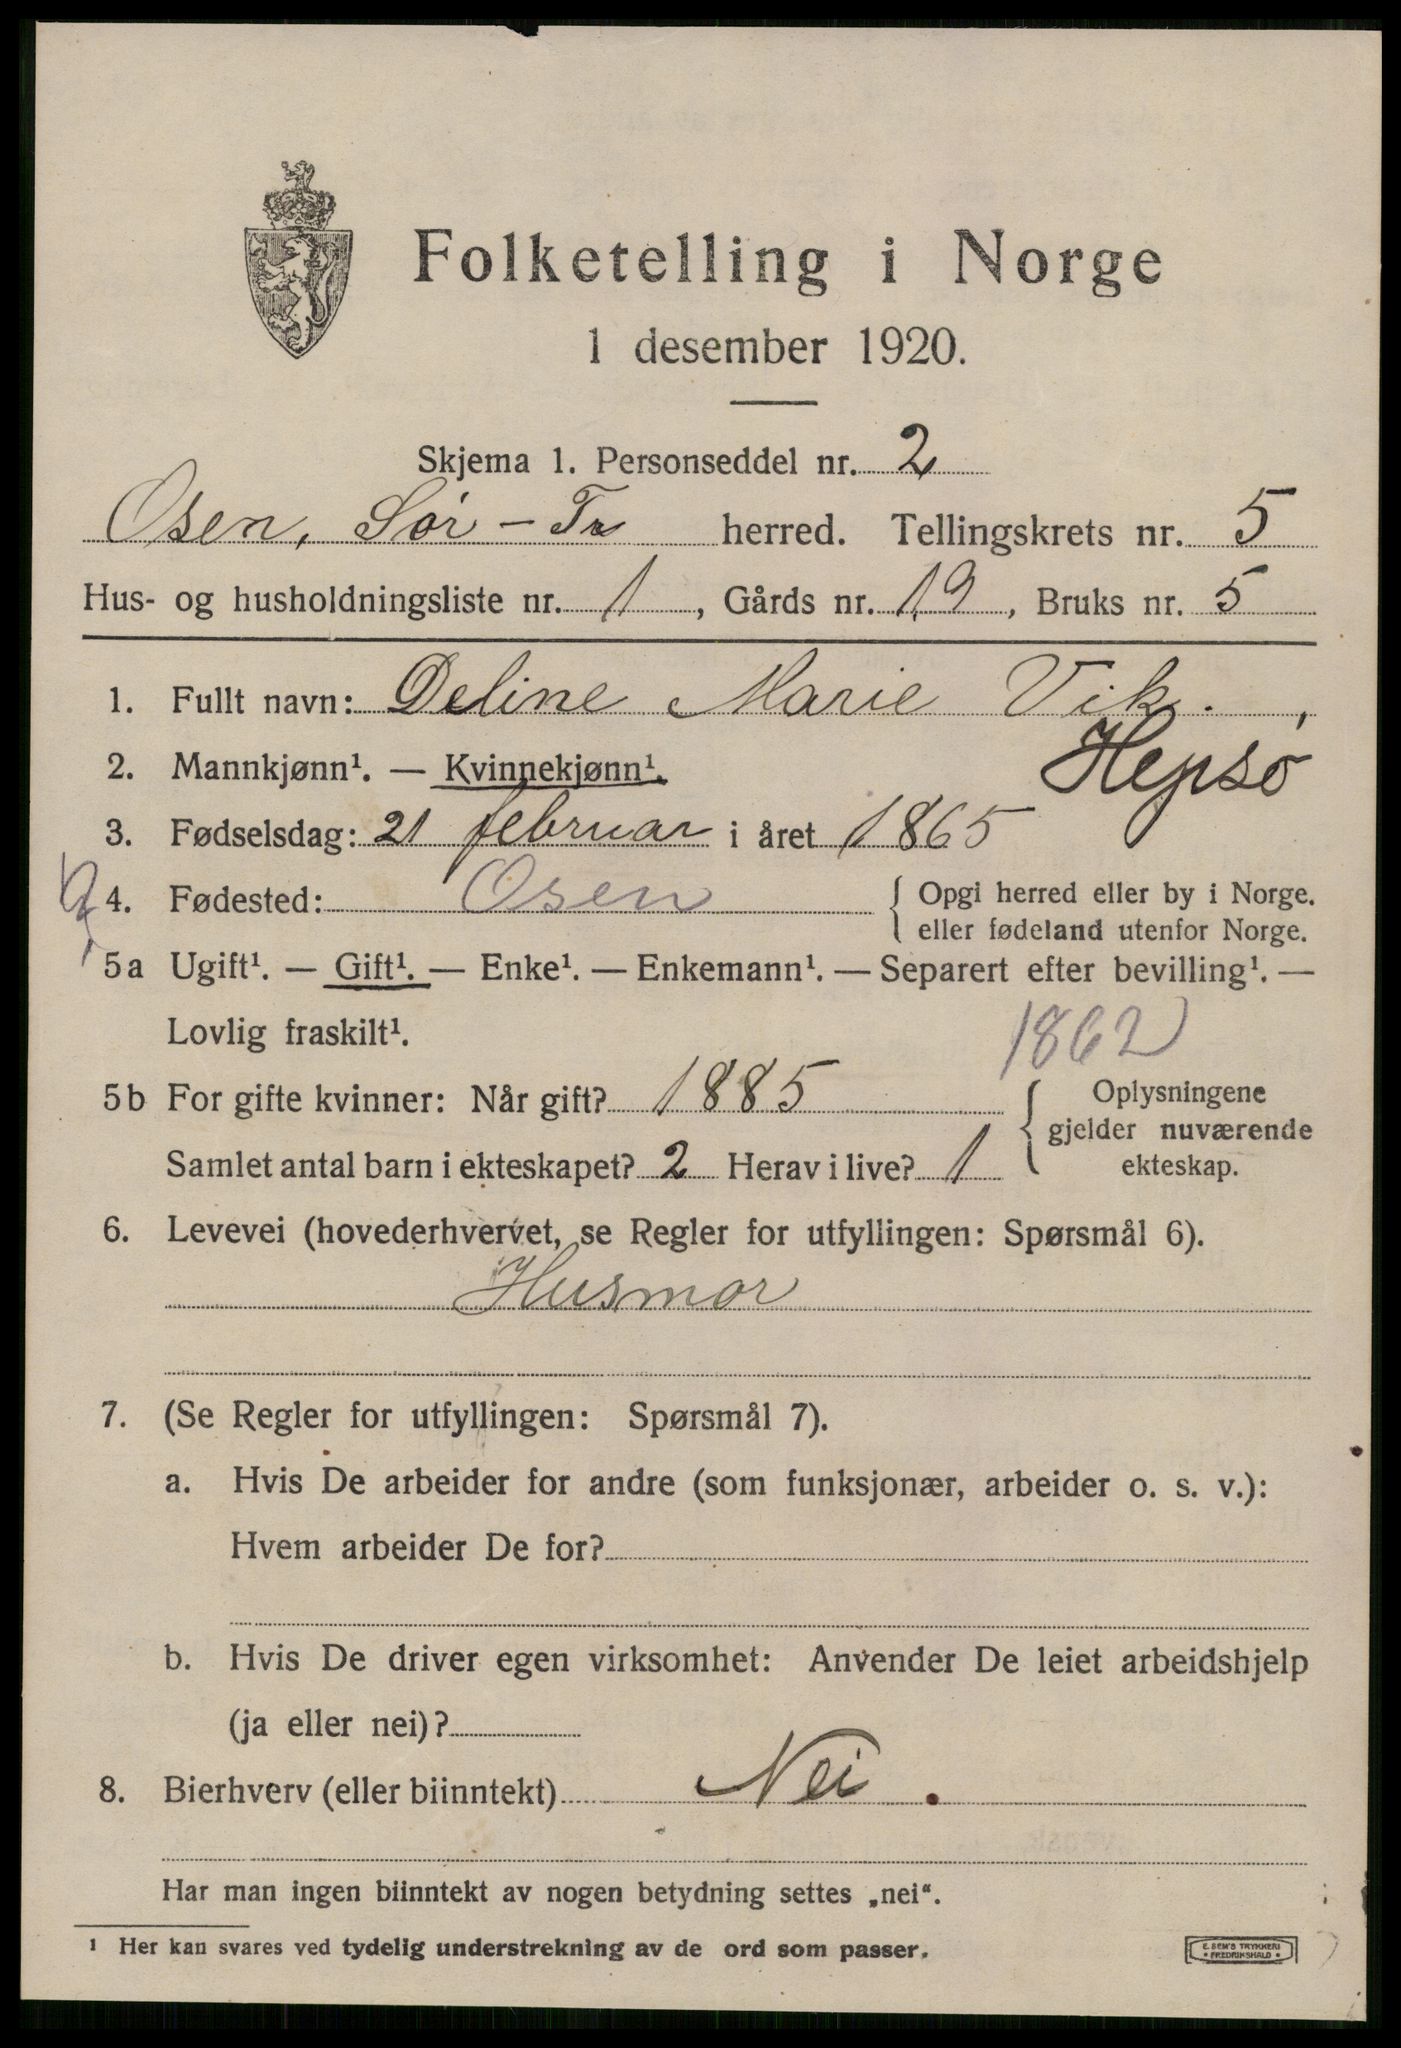 Folketelling i Norge
1 desember 1920.
Skjema 1. Personseddel nr. 2
Osen, Sør-Tr herred. Tellingskrets nr. 5
Hus- og husholdningsliste nr. 1, Gårds nr. 19, Bruks nr. 5
1. Fullt navn: Deline Marie Vik.,
Hepsø
2. Mannkjønn¹. — Kvinnekjønn¹.
3. Fødselsdag: 21 februar i året 1865
4. Fødested: Osen { Opgi herred eller by i Norge.
eller fødeland utenfor Norge.
5a Ugift¹. — Gift¹. — Enke¹. — Enkemann¹. — Separert efter bevilling¹. —
Lovlig fraskilt¹.
1862
5b For gifte kvinner: Når gift? 1885 { Oplysningene
gjelder nuværende
ekteskap.
Samlet antal barn i ekteskapet? 2 Herav i live? 1
6. Levevei (hovederhvervet, se Regler for utfyllingen: Spørsmål 6).
Husmor
7. (Se Regler for utfyllingen: Spørsmål 7).
a. Hvis De arbeider for andre (som funksjonær, arbeider o. s. v.):
Hvem arbeider De for?
b. Hvis De driver egen virksomhet: Anvender De leiet arbeidshjelp
(ja eller nei)?
8. Bierhverv (eller biinntekt) Nei.
Har man ingen biinntekt av nogen betydning settes „nei“.
¹ Her kan svares ved tydelig understrekning av de ord som passer.
E. SEM'S TRYKKERI
• FREDRIKSHALD •